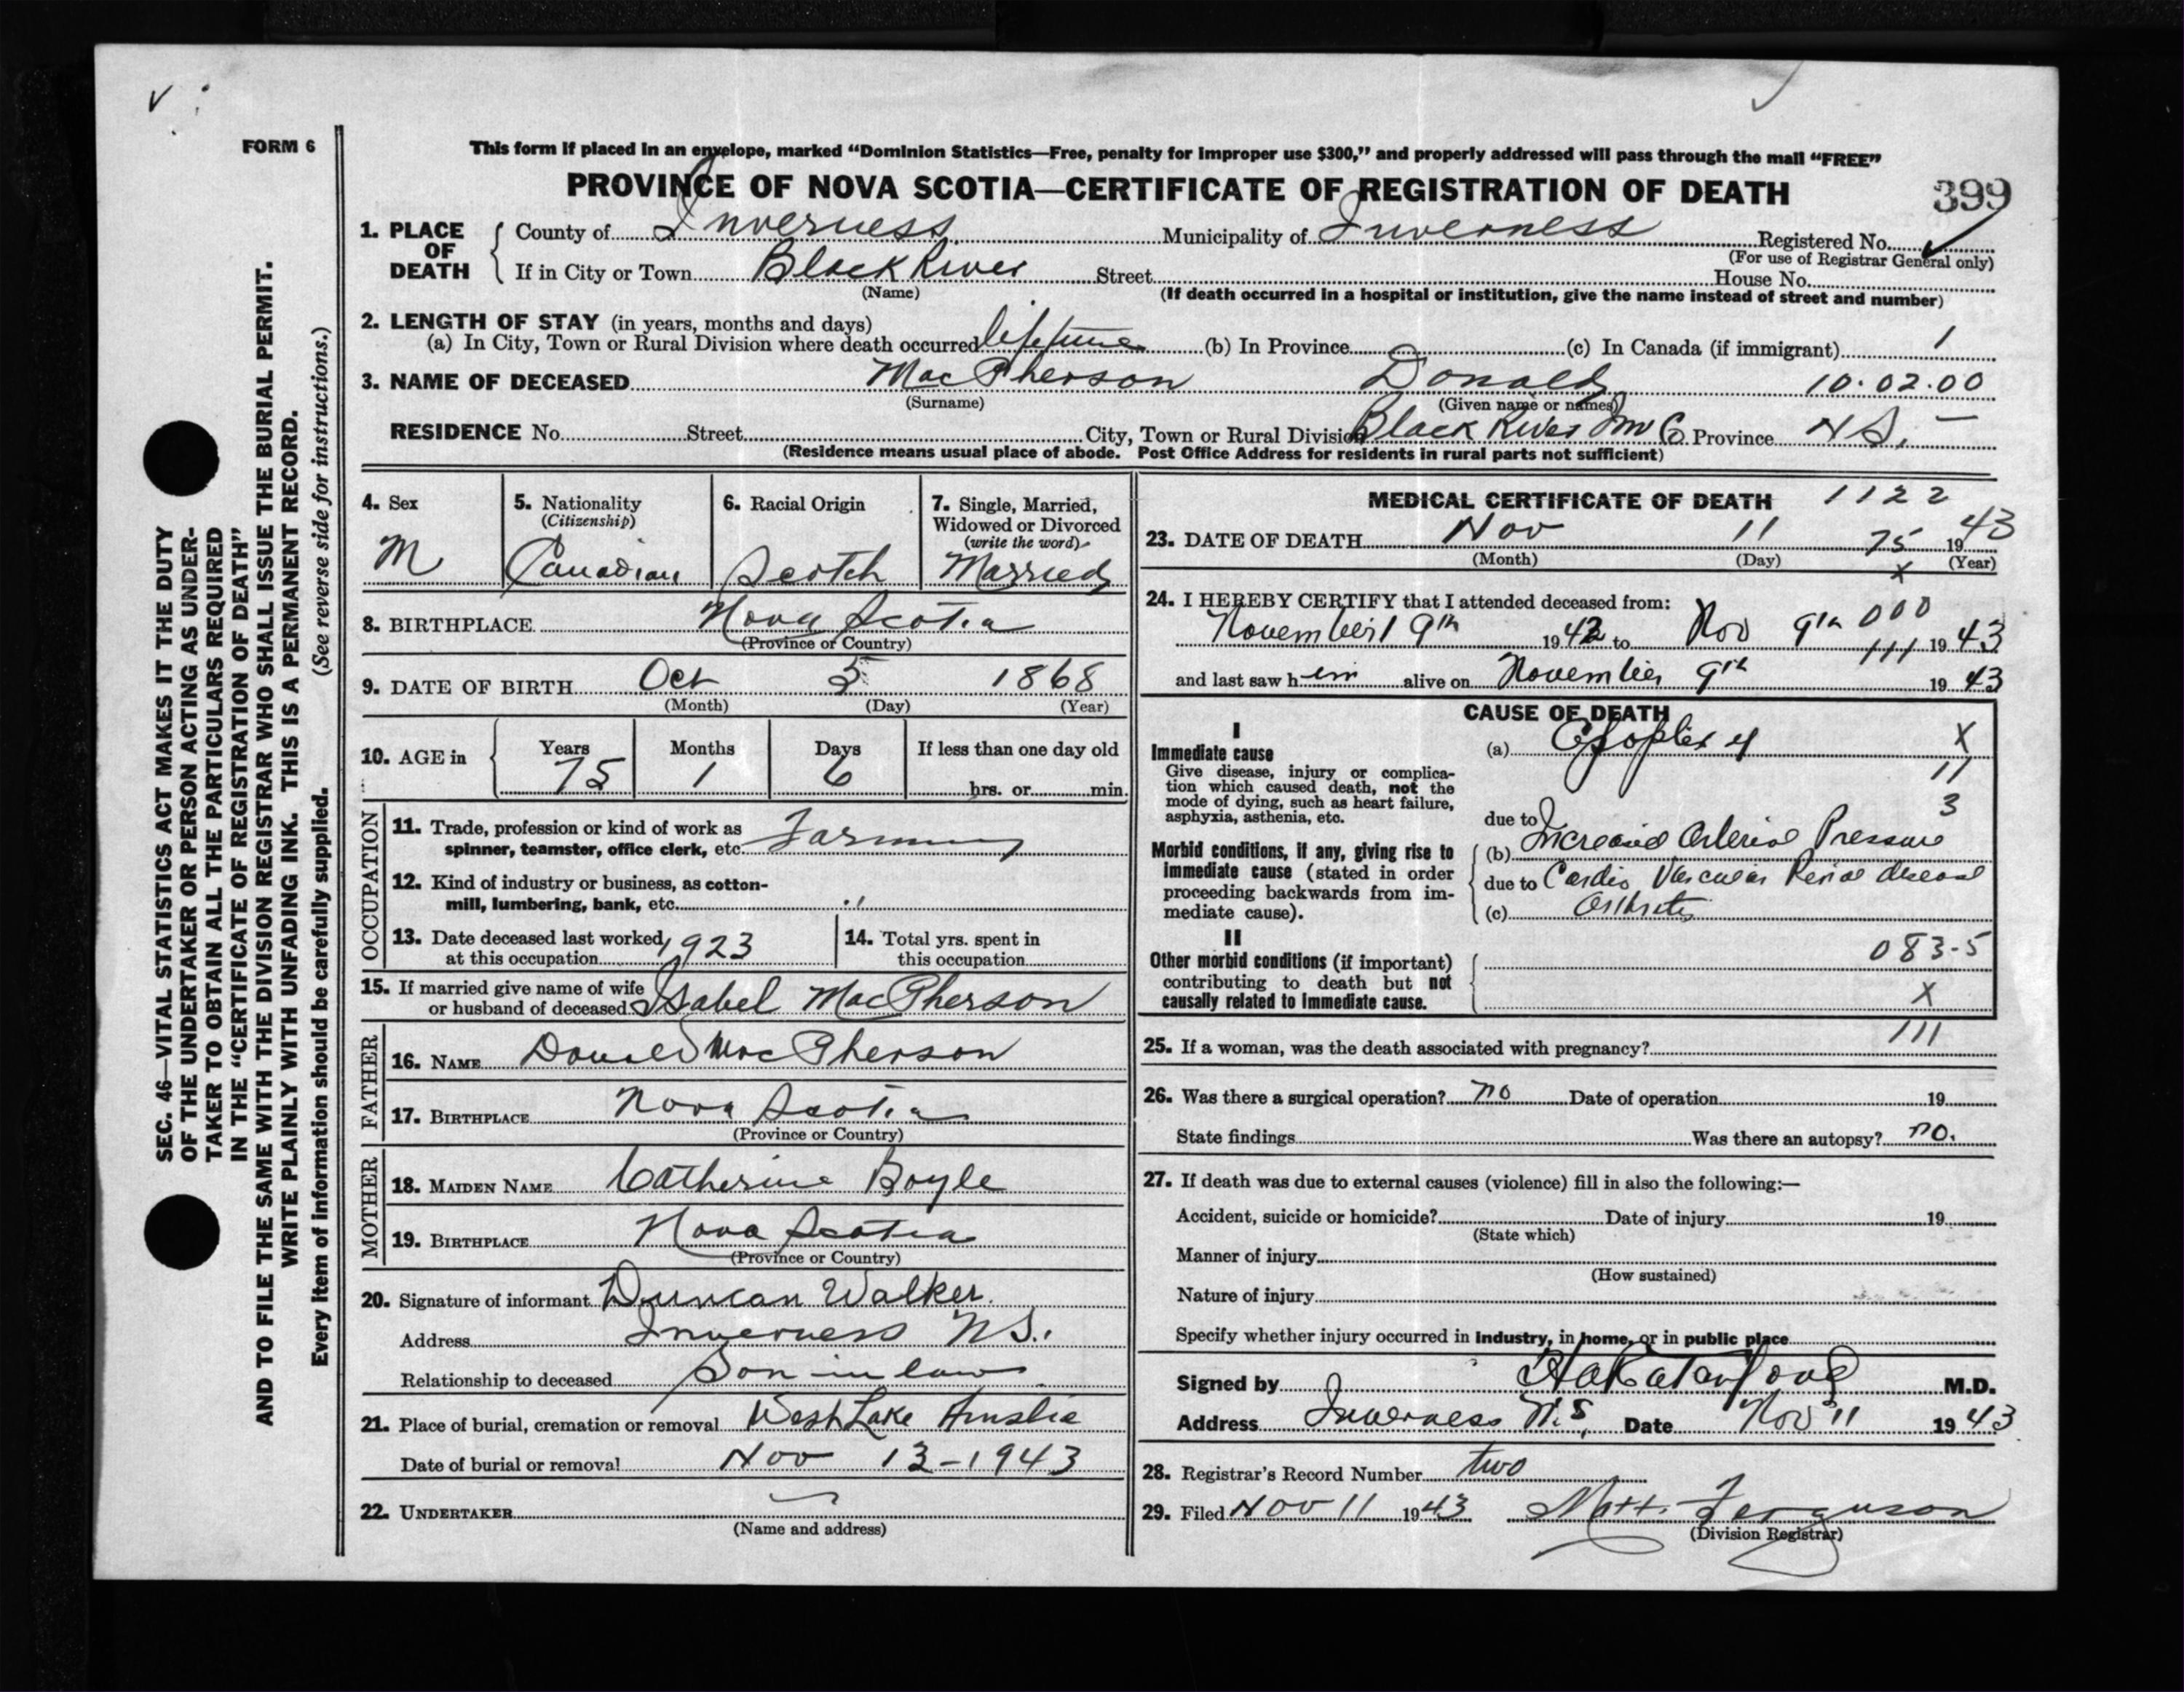 FORM 6
This form if placed in an envelope, marked “Dominion Statistics—Free, penalty for improper use $300,” and properly addressed will pass through the mail “FREE”
PROVINCE OF NOVA SCOTIA—CERTIFICATE OF REGISTRATION OF DEATH
399
1. PLACE OF DEATH
County of Inverness Municipality of Inverness Registered No.
(For use of Registrar General only)
If in City or Town Black River Street House No.
(Name) (If death occurred in a hospital or institution, give the name instead of street and number)
2. LENGTH OF STAY (in years, months and days)
(a) In City, Town or Rural Division where death occurred lifetime (b) In Province (c) In Canada (if immigrant) 1
3. NAME OF DECEASED MacPherson Donald 10.02.00
(Surname) (Given name or names)
RESIDENCE No. Street City, Town or Rural Division Black River Inv Co Province N S. —
(Residence means usual place of abode. Post Office Address for residents in rural parts not sufficient)
4. Sex
M
5. Nationality
(Citizenship)
Canadian
6. Racial Origin
Scotch
7. Single, Married,
Widowed or Divorced
(write the word)
Married
8. BIRTHPLACE Nova Scotia
(Province or Country)
9. DATE OF BIRTH Oct 5 1868
(Month) (Day) (Year)
10. AGE in
Years Months Days If less than one day old
75 1 6 hrs. or min.
OCCUPATION
11. Trade, profession or kind of work as
spinner, teamster, office clerk, etc. Farming
12. Kind of industry or business, as cotton-
mill, lumbering, bank, etc. "
13. Date deceased last worked
at this occupation 1923
14. Total yrs. spent in
this occupation
15. If married give name of wife
or husband of deceased Isabel MacPherson
FATHER
16. NAME Donald MacPherson
17. BIRTHPLACE Nova Scotia
(Province or Country)
MOTHER
18. MAIDEN NAME Catherine Boyle
19. BIRTHPLACE Nova Scotia
(Province or Country)
20. Signature of informant Duncan Walker.
Address Inverness N.S.
Relationship to deceased Son in law
21. Place of burial, cremation or removal West Lake Ainslie
Date of burial or removal Nov 13-1943
22. UNDERTAKER
(Name and address)
MEDICAL CERTIFICATE OF DEATH 1122
23. DATE OF DEATH Nov 11 75 1943
(Month) (Day) (Year)
x
24. I HEREBY CERTIFY that I attended deceased from: 000
November 9th 1942 to Nov 9th 1943
111
and last saw him alive on November 9th 1943
CAUSE OF DEATH
I
Immediate cause
Give disease, injury or complica-
tion which caused death, not the
mode of dying, such as heart failure,
asphyxia, asthenia, etc.
(a) X
11
3
due to
Morbid conditions, if any, giving rise to
immediate cause (stated in order
proceeding backwards from im-
mediate cause).
(b) Increased Arterial Pressure
due to Cardio Vascular Renal disease
(c) Arthritis
II
Other morbid conditions (if important)
contributing to death but not
causally related to immediate cause.
083-5
X
25. If a woman, was the death associated with pregnancy? 111
26. Was there a surgical operation? no Date of operation 19
State findings Was there an autopsy? no.
27. If death was due to external causes (violence) fill in also the following:—
Accident, suicide or homicide? Date of injury 19
(State which)
Manner of injury
(How sustained)
Nature of injury
Specify whether injury occurred in industry, in home, or in public place
Signed by M.D.
Address Inverness N.S, Date Nov 11 1943
28. Registrar's Record Number two
29. Filed Nov 11 1943 Matt. Ferguson
(Division Registrar)
SEC. 46—VITAL STATISTICS ACT MAKES IT THE DUTY
OF THE UNDERTAKER OR PERSON ACTING AS UNDER-
TAKER TO OBTAIN ALL THE PARTICULARS REQUIRED
IN THE “CERTIFICATE OF REGISTRATION OF DEATH”
AND TO FILE THE SAME WITH THE DIVISION REGISTRAR WHO SHALL ISSUE THE BURIAL PERMIT.
WRITE PLAINLY WITH UNFADING INK. THIS IS A PERMANENT RECORD.
Every item of information should be carefully supplied. (See reverse side for instructions.)